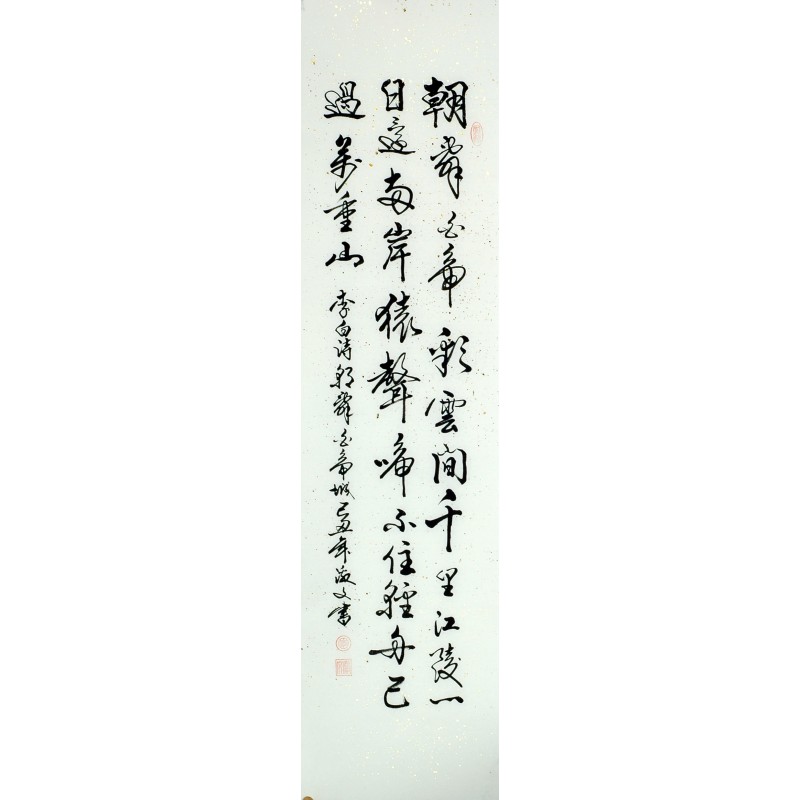 朝辭白帝彩雲間千里江陵一
日還兩岸猿聲啼不住輕舟已
過萬重山 李白诗朝辭白帝城己丑年文書